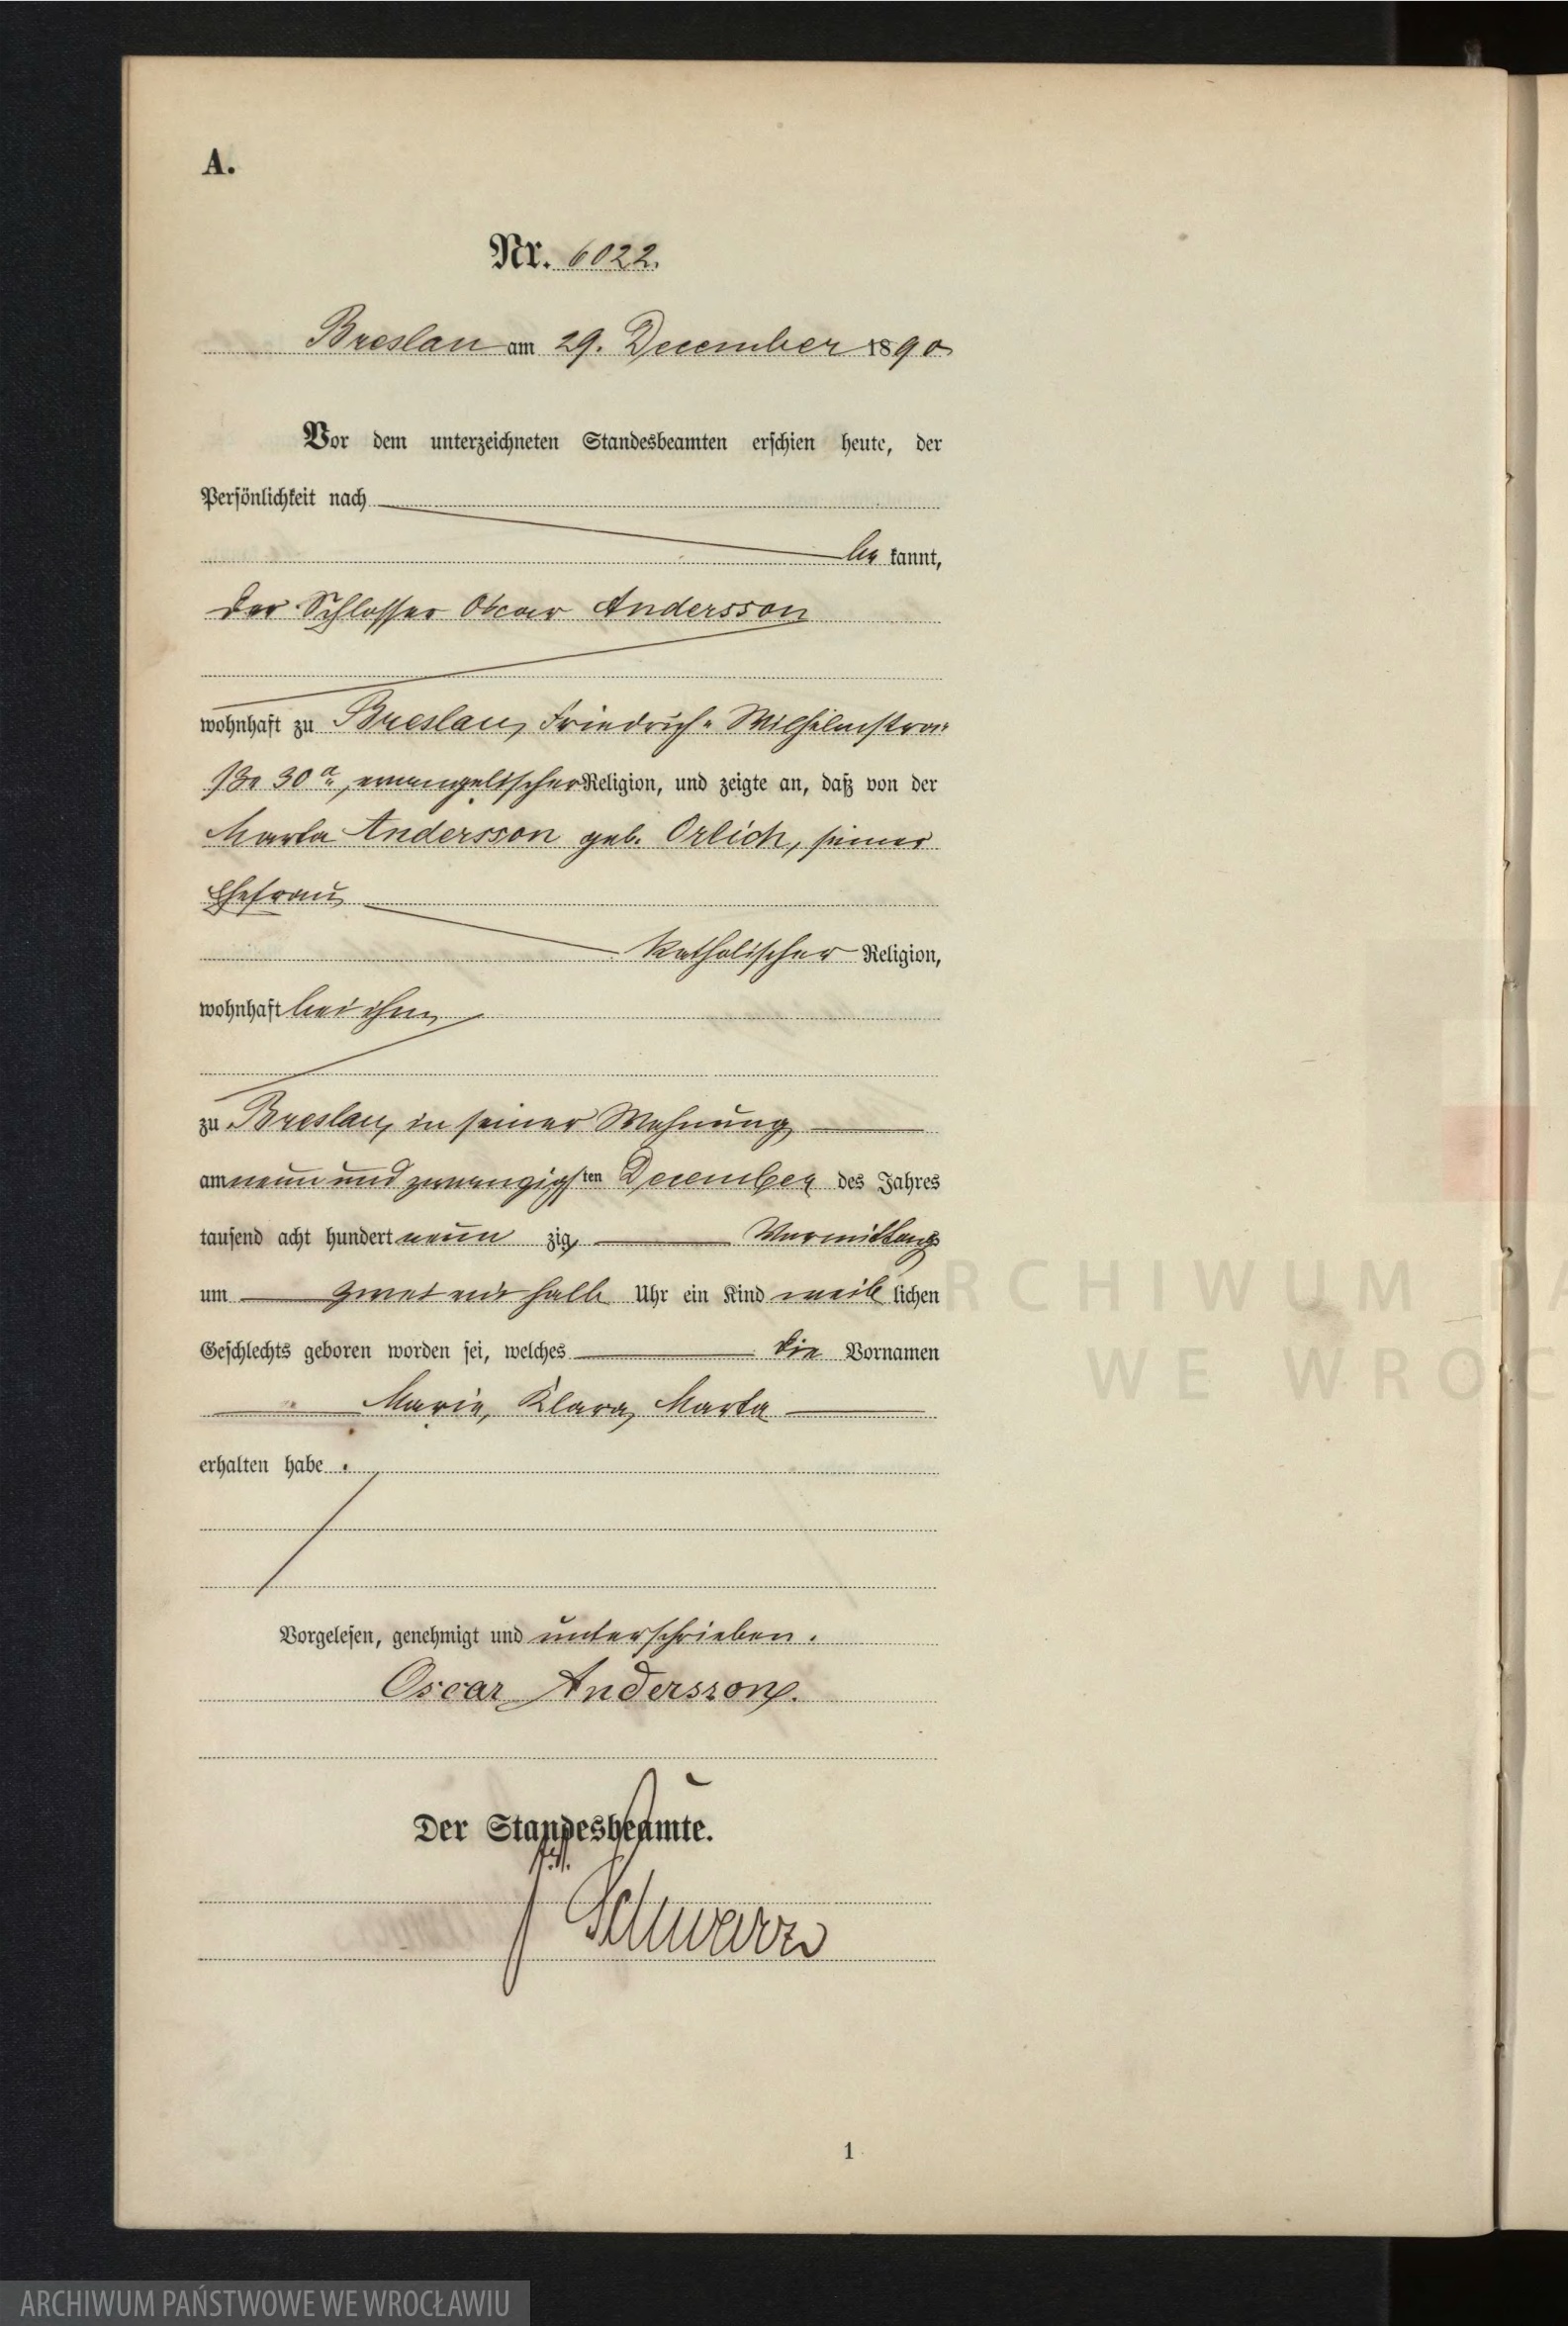 A.
Nr. 6022.
Breslau am 29. December 1890
Vor dem unterzeichneten Standesbeamten erschien heute, der
Persönlichkeit nach
be kannt,
der Schlosser Oscar Andersson
wohnhaft zu Breslau, Friedrich-Wilhelmstra-
ße 30a, evangelischer Religion, und zeigte an, daß von der
Marta Andersson geb. Orlich, seiner
Ehefrau
katholischer Religion,
wohnhaft bei ihm
zu Breslau, in seiner Wohnung
am neun und zwanzigsten December des Jahres
tausend acht hundert neun zig, Vormittags
um zwei ein halb Uhr ein Kind weib lichen
Geschlechts geboren worden sei, welches die Vornamen
Marie, Klara, Marta
erhalten habe.
Vorgelesen, genehmigt und unterschrieben.
Oscar Andersson.
Der Standesbeamte.
Schwarz
1
ARCHIWUM PA
WE WROC
ARCHIWUM PAŃSTWOWE WE WROCŁAWIU